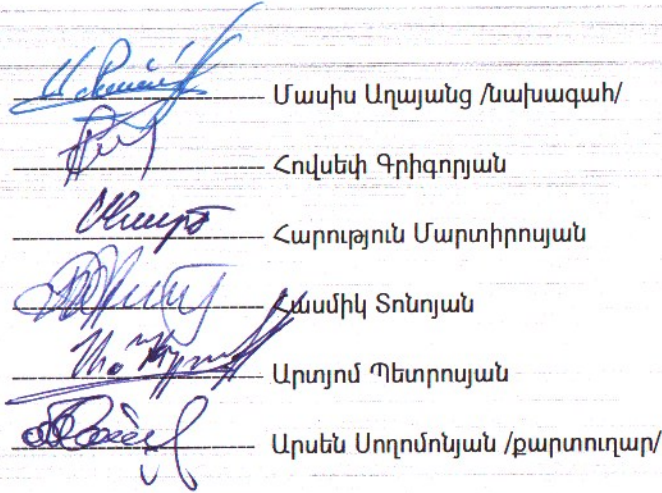 Մասիս Աղայանց /նախագահ/
Հովսեփ Գրիգորյան
Հարություն Մարտիրոսյան
Հասմիկ Տոնոյան
Արտյոմ Պետրոսյան
Արսեն Սողոմոնյան /քարտուղար/